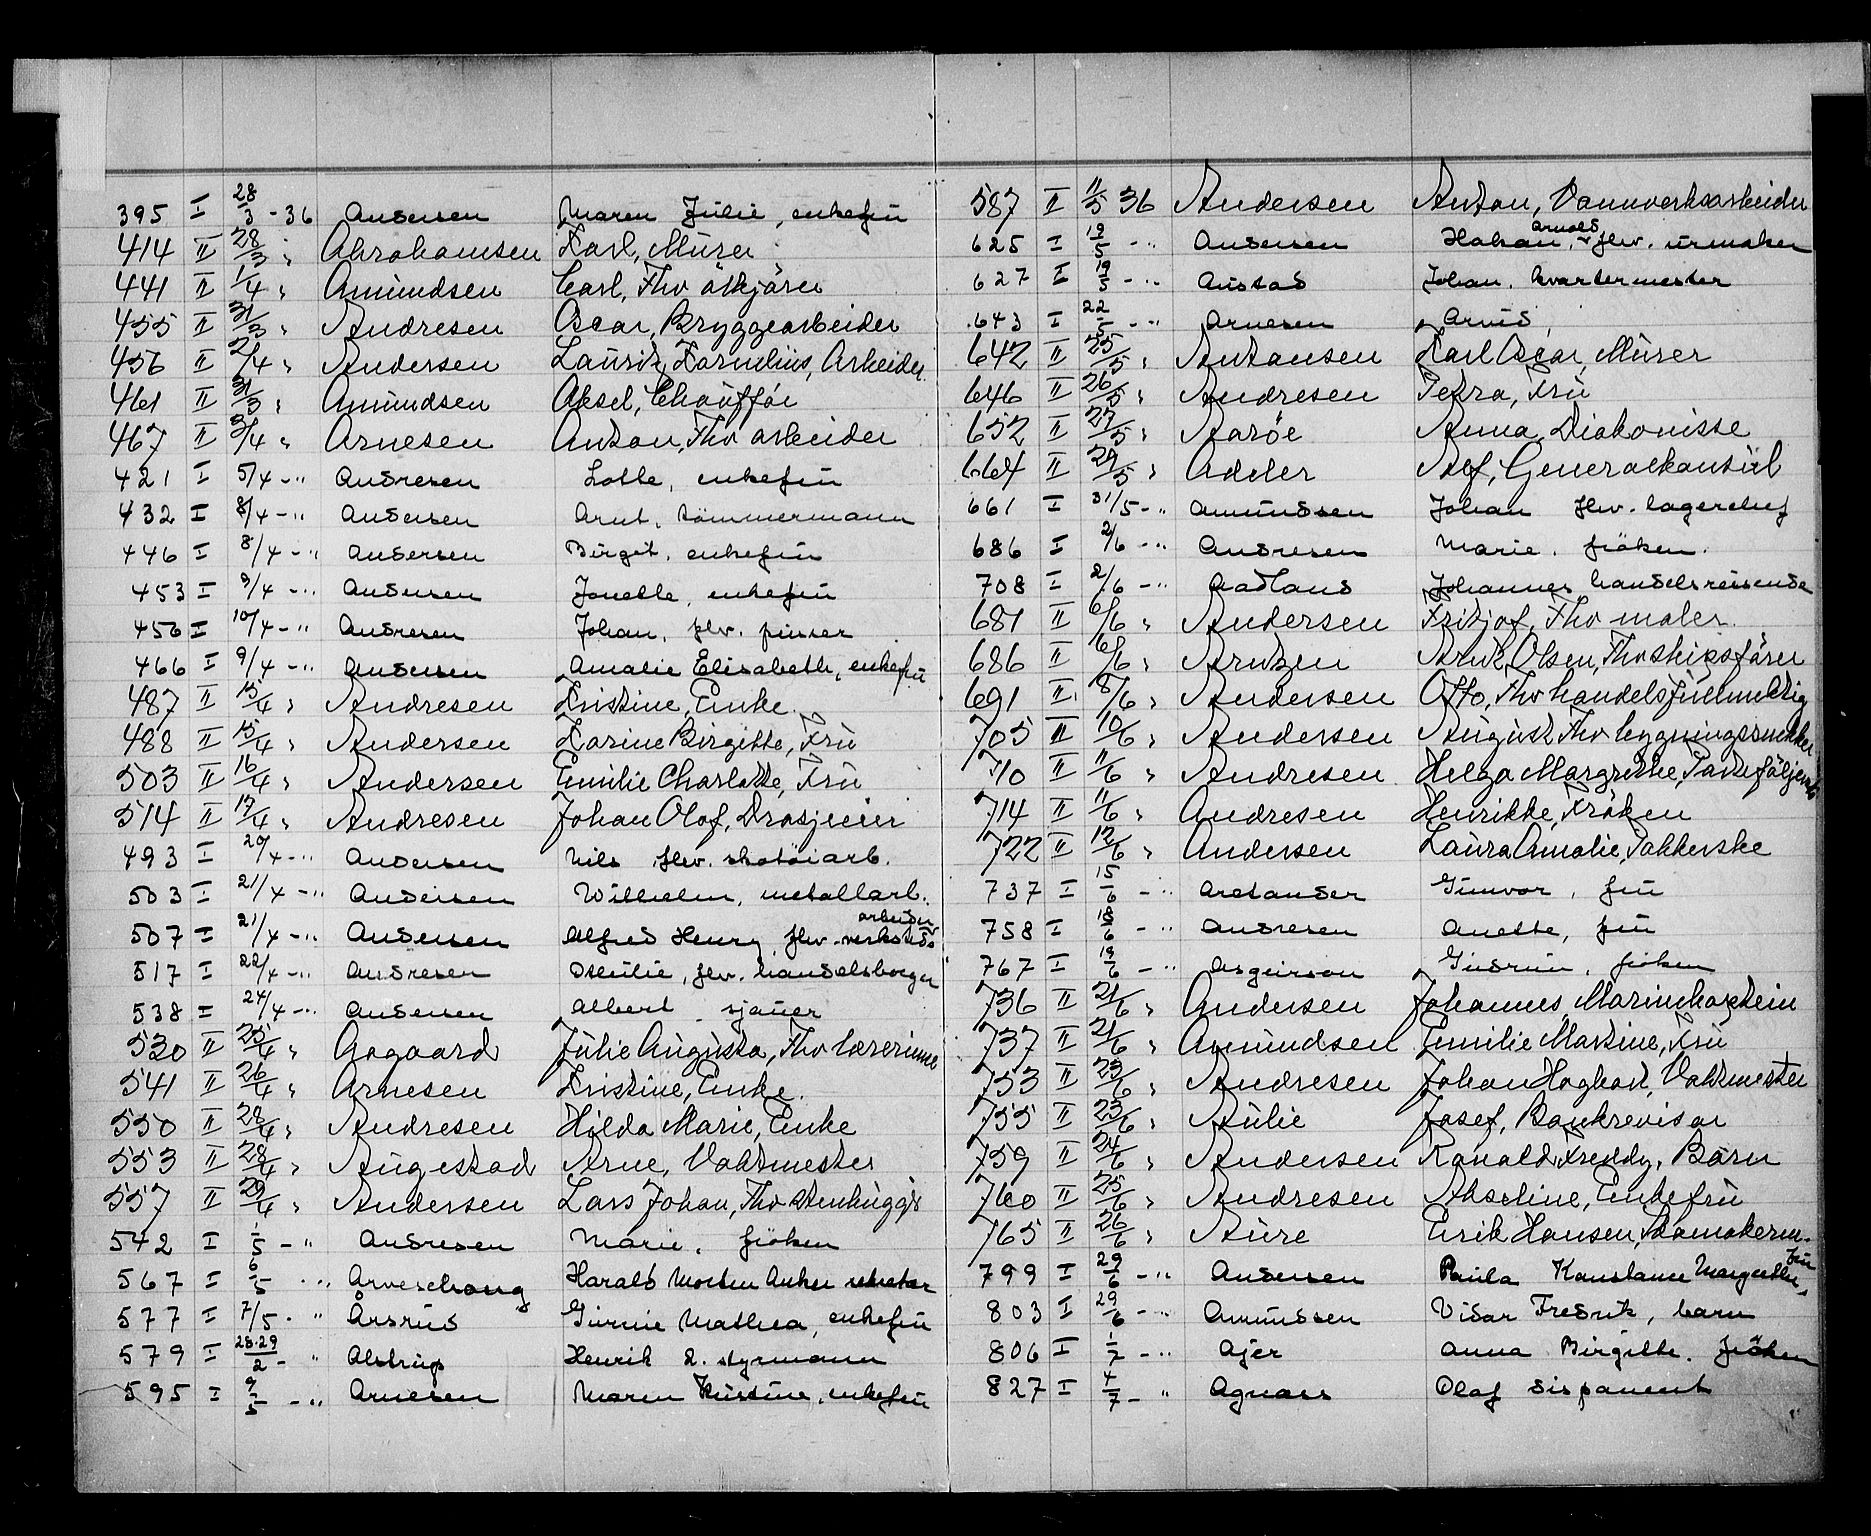 395 I 28/3 - 36 Andersen Maren Julie, enkefru
414 II 28/3 " Abrahamsen Karl, Murer
441 II 1/4 " Amundsen Carl, Fhv
455 II 31/3 " Andresen Oscar, Bryggearbeider
456 II 2/4 " Andersen Lauritz Kornelius, Arbeider
461 II 31/3 " Amundsen Aksel, Chauffør
467 II 3/4 " Arnesen Anton, Fhv arbeider
421 I 5/4 - " Andresen Lotte, enkefru
432 I 8/4 - " Andersen Arnt, tømmermann
446 I 8/4 - " Andersen Birgit, enkefru
453 I 9/4 - " Andersen Jonette, enkefru
456 I 10/4 - " Andresen Johan, fhv.
466 I 9/4 - " Andersen Amalie Elisabeth, enkefru
487 II 15/4 " Andresen Kristine, Enke
488 II 15/4 " Andersen Karine Birgitte, Fru
503 II 16/4 " Andersen Emilie Charlotte, Fru
514 II 17/4 " Andresen Johan Olaf, Drosjeeier
493 I 20/4 - " Andersen Nils fhv. skotøiarb.
503 I 21/4 - " Andersen Wilhelm, metallarb.
507 I 21/4 - " Andersen Alfred Henry fhv. verksteds arbeider
517 I 22/4 - " Andresen Otilie, fhv. handelsborger
538 I 24/4 - " Andersen Albert sjauer
530 II 25/4 " Aagaard Julie Augusta, Fhv lærerinne
541 II 26/4 " Arnesen Kristine, Enke
550 II 28/4 " Andresen Hilda Marie, Enke
553 II 28/4 " Augestad Arne, Vaktmester
557 II 29/4 " Andersen Lars Johan, Fhv stenhugger
542 I 1/5 - " Andresen Marie, frøken
567 I 6/5 - " Arveschoug Harald Morten Anker sekretær
577 I 7/5 - " Årsrud Gurine Mathea, enkefru
579 I 28-29/2 - " Alstrup Henrik 2. styrmann
595 I 9/5 - " Arnesen Maren Kristine, enkefru
587 II 11/5 36 Andersen Anton, Vannverksarbeider
625 I 19/5 - " Andersen Håkan, Arnold fhv. urmaker
627 I 19/5 - " Austad Johan, kvartermester
643 I 22/5 - " Arnesen Arvid,
642 II 25/5 " Antonsen Karl Oscar, Murer
646 II 26/5 " Andresen Petra, Fru
652 II 27/5 " Aarøe Anna, Diakonisse
664 II 29/5 " Adeler Alf, Generalkonsul
661 I 31/5 - " Amundsen Johan fhv. lagerchef
686 I 2/6 - " Andresen Marie, frøken.
708 I 2/6 - " Aadland Johannes handelsreisende
681 II 6/6 " Andersen Fritjof, Fhv maler
686 II 6/6 " Arntzen Arnt Olsen, Fhv skipsfører
691 II 8/6 " Andersen Otto, Fhv handelsfullmektig
705 II 10/6 " Andersen August Fhv bygningssnekker
710 II 11/6 " Andresen Helga Margrethe,
714 II 11/6 " Andresen Henrikke, Frøken
722 II 12/6 " Andersen Laura Amalie, Pakkerske
737 I 15/6 - " Aretander Gunvor, fru
758 I 18/6 - " Andresen Anette, fru
767 I 19/6 - " Asgeirson Gudrun, frøken
736 II 21/6 " Andersen Johannes, Marinekaptein
737 II 21/6 " Amundsen Emilie Martine, Fru
753 II 23/6 " Andresen Johan Hagbart, Vaktmester
755 II 23/6 " Aulie Josef, Bankrevisor
759 II 24/6 " Andersen Ronald Freddy, Barn
760 II 25/6 " Andresen Akseline, Enkefru
765 II 26/6 " Aure Erik Hansen,
799 I 29/6 - " Andersen Paula Konstance Margrethe, fru
803 I 29/6 - " Amundsen Vidar Fredrik, barn
806 I 1/7 - " Ajer Anna Birgitte, frøken
827 I 4/7 - " Agnæs Olaf disponent